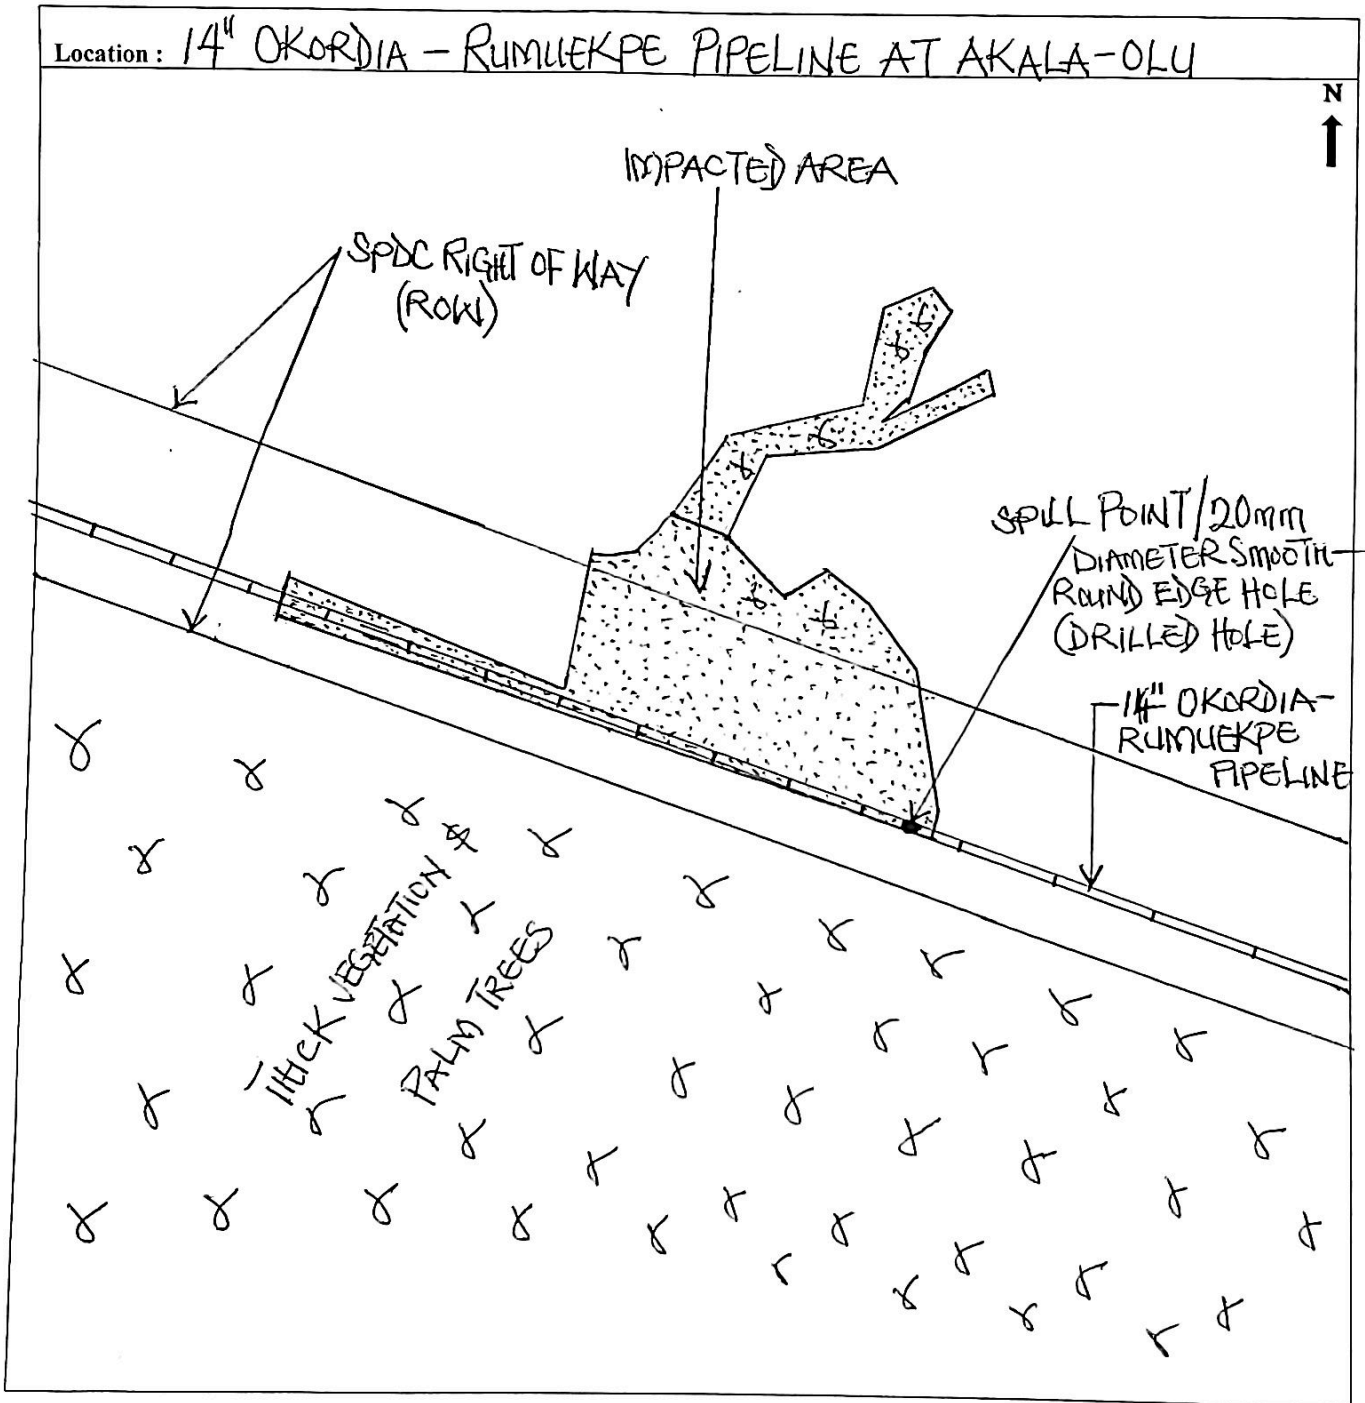 Location : 14" OKORDIA - RUMUEKPE PIPELINE AT AKALA-OLU
N
IMPACTED AREA
SPDC RIGHT OF WAY
(ROW)
SPILL POINT/20mm
DIAMETER SMOOTH-
ROUND EDGE HOLE
(DRILLED HOLE)
14" OKORDIA-
RUMUEKPE
PIPELINE
THICK VEGETATION &
PALM TREES